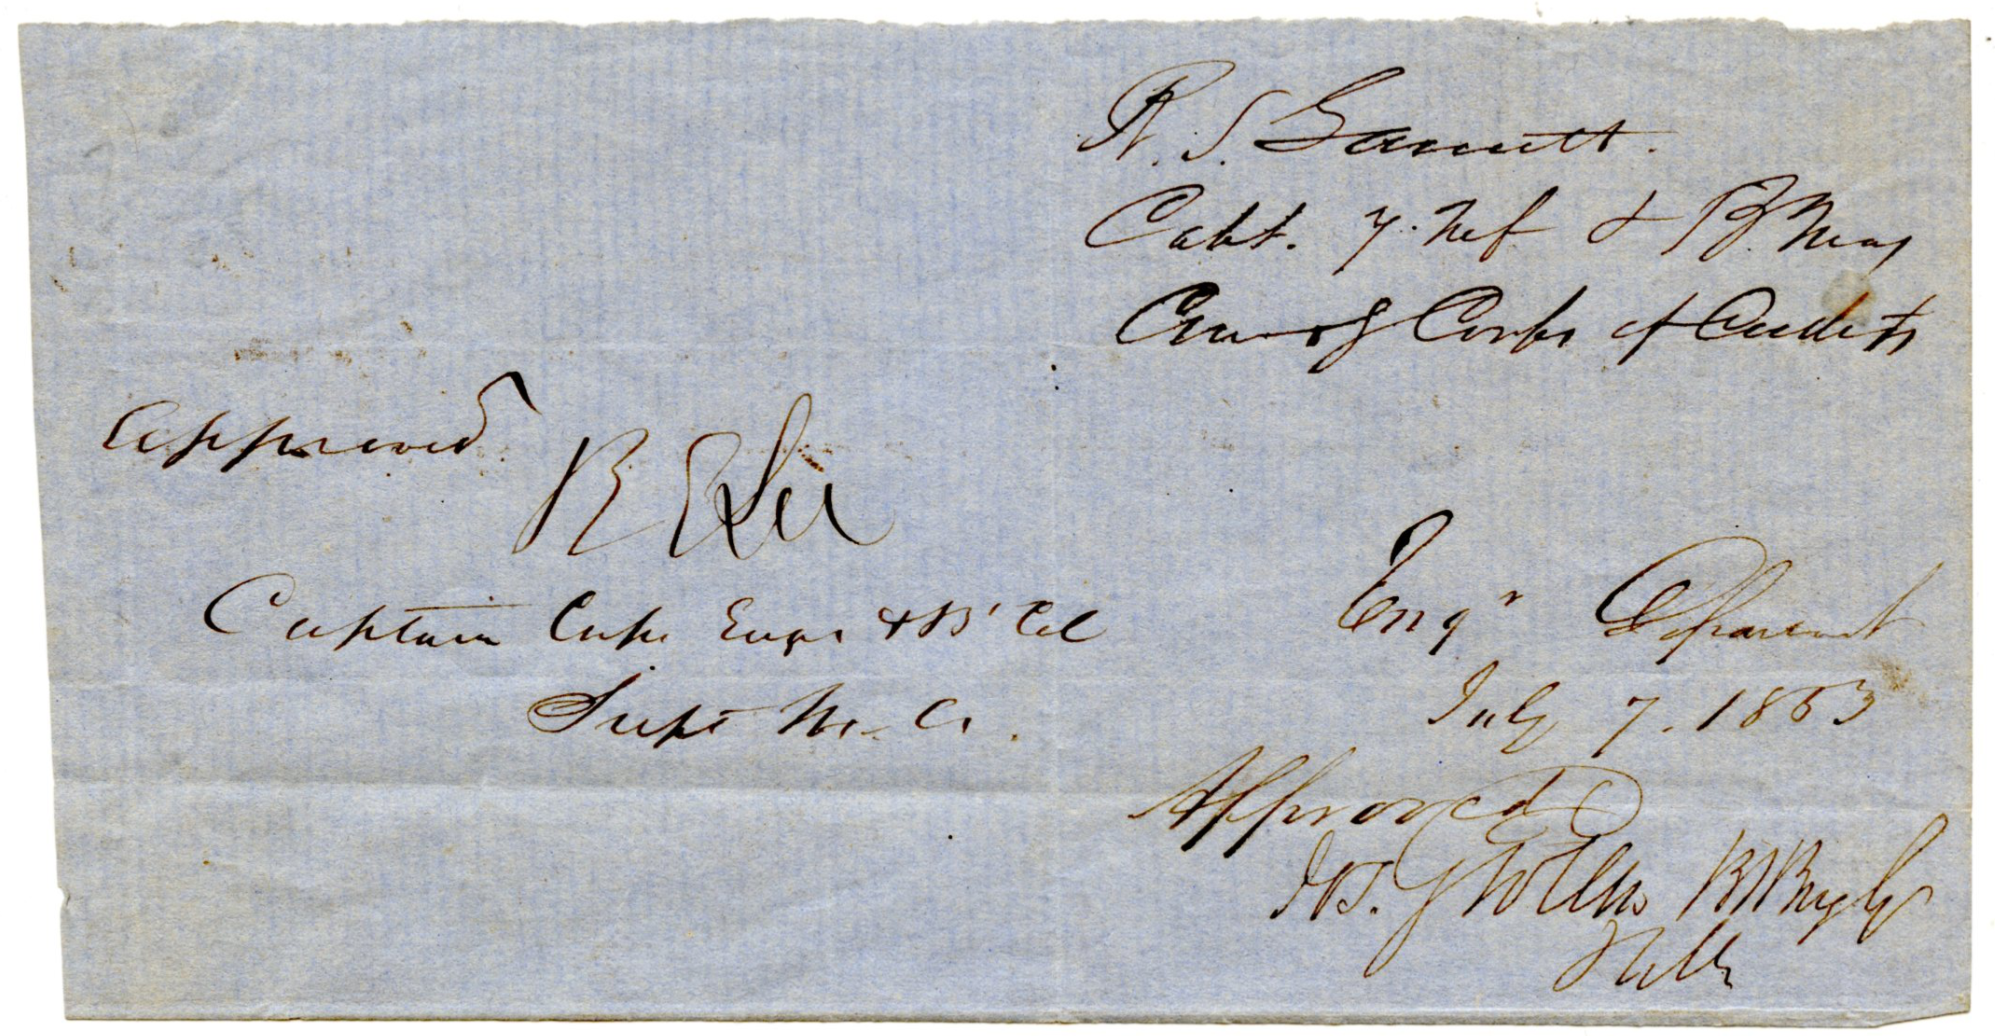 R. S. Garnett.
Capt. 7. Inf & B. Maj
Comdg Corps of Cadets
Approved
R E Lee
Captain Corps Engrs & Bt Col
Supt M. A.
Engr Department
July 7. 1853
Approved
Jos. G Totten Bt Brigr